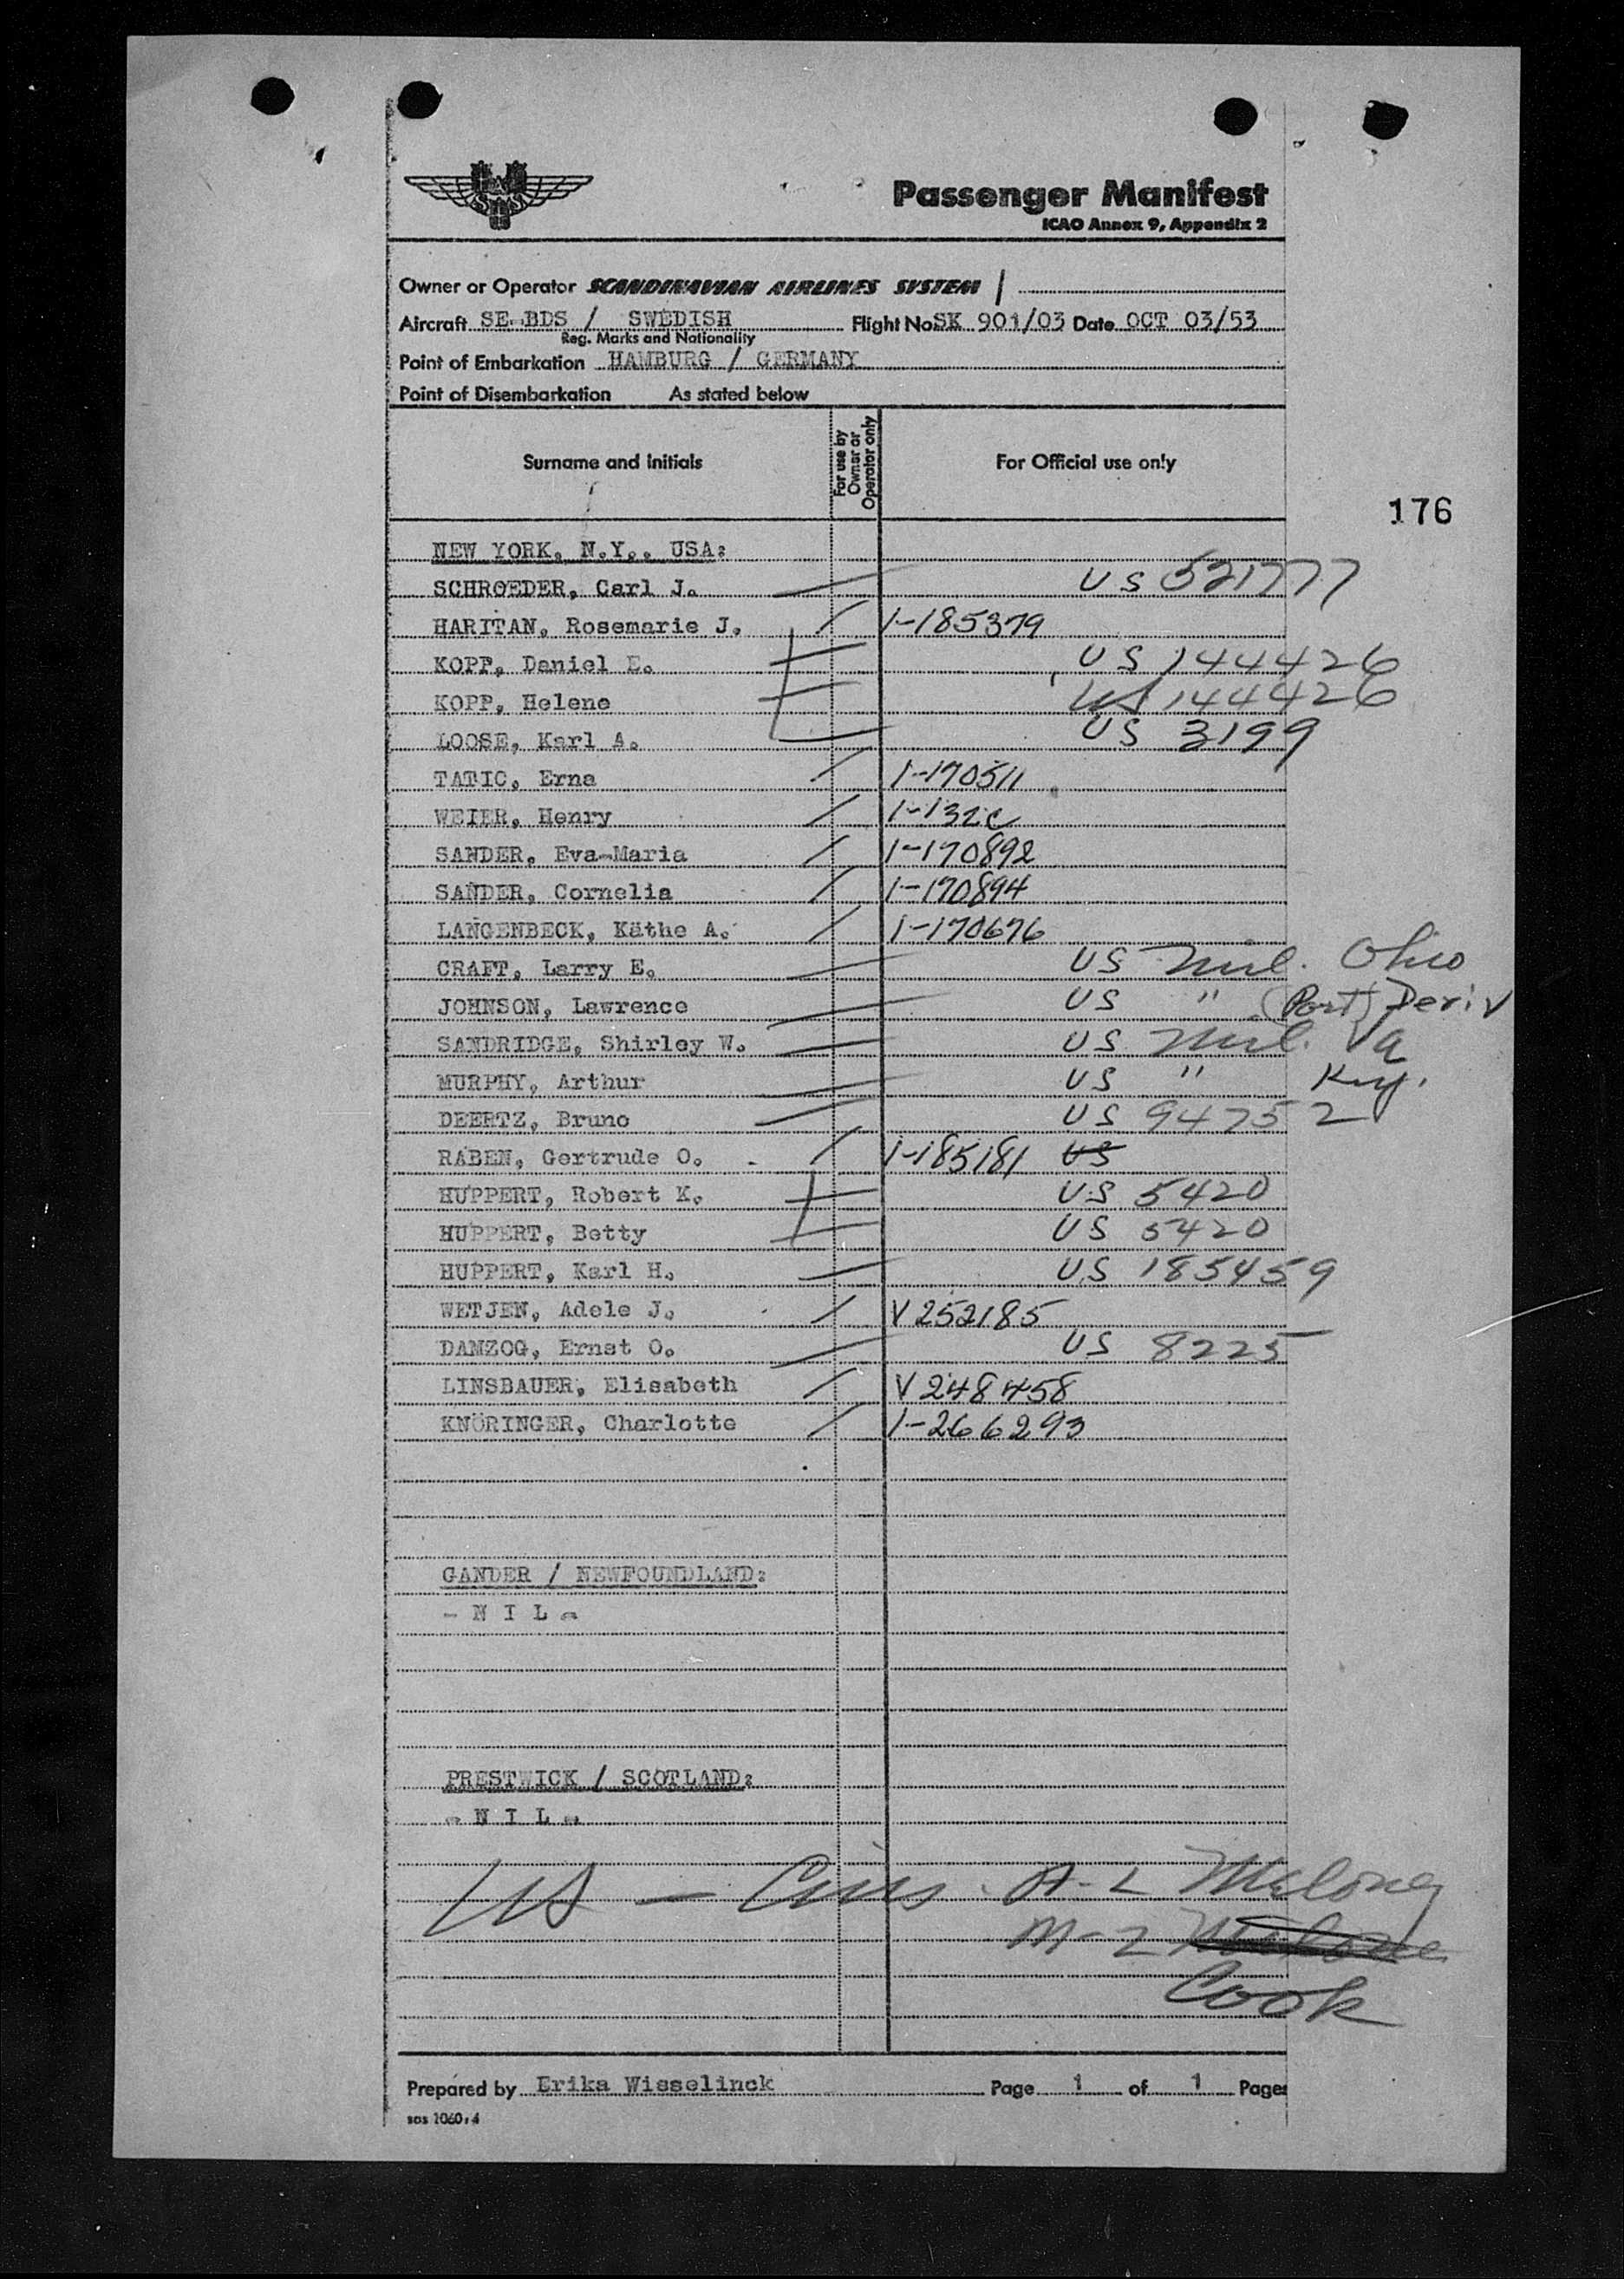 Passenger Manifest
ICAO Annex 9, Appendix 2
Owner or Operator SCANDINAVIAN AIRLINES SYSTEM /
Aircraft SE-BDS / SWEDISH Flight No SK 901/03 Date OCT 03/53
Reg. Marks and Nationality
Point of Embarkation HAMBURG / GERMANY
Point of Disembarkation As stated below
Surname and Initials For use by Owner or Operator only For Official use only
176
NEW YORK, N.Y., USA:
SCHROEDER, Carl J. US 521777
HARITAN, Rosemarie J. 1-185379
KOPP, Daniel E. US 144426
KOPP, Helene US 144426
LOOSE, Karl A. US 3199
TATIC, Erna 1-170511
WEIER, Henry
SANDER, Eva-Maria 1-170892
SANDER, Cornelia 1-170894
LANGENBECK, Käthe A. 1-170676
CRAFT, Larry E. US Mil. Ohio
JOHNSON, Lawrence US " (Port) Deriv
SANDRIDGE, Shirley W. US Mil. Va
MURPHY, Arthur US " Ky.
DEERTZ, Bruno US 94752
RABEN, Gertrude O. 1-185181 US
HUPPERT, Robert K. US 5420
HUPPERT, Betty US 5420
HUPPERT, Karl H. US 185459
WETJEN, Adele J. V 252185
DAMZOG, Ernst O. US 8225
LINSBAUER, Elisabeth V 248458
KNÖRINGER, Charlotte 1-266293
GANDER / NEWFOUNDLAND:
- N I L -
PRESTWICK / SCOTLAND:
- N I L -
US - A-L Meloney
M-Z
Cook
Prepared by Erika Wisselinck Page 1 of 1 Pages
sas 1060:4